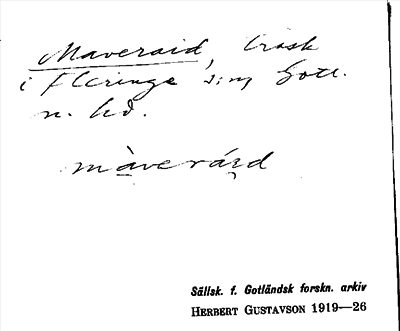 Maveraid, träsk
i Fleringe s:n, Gotl.
n. hd.
màverárd
Sällsk. f. Gotländsk forskn. arkiv
HERBERT GUSTAVSON 1919—26